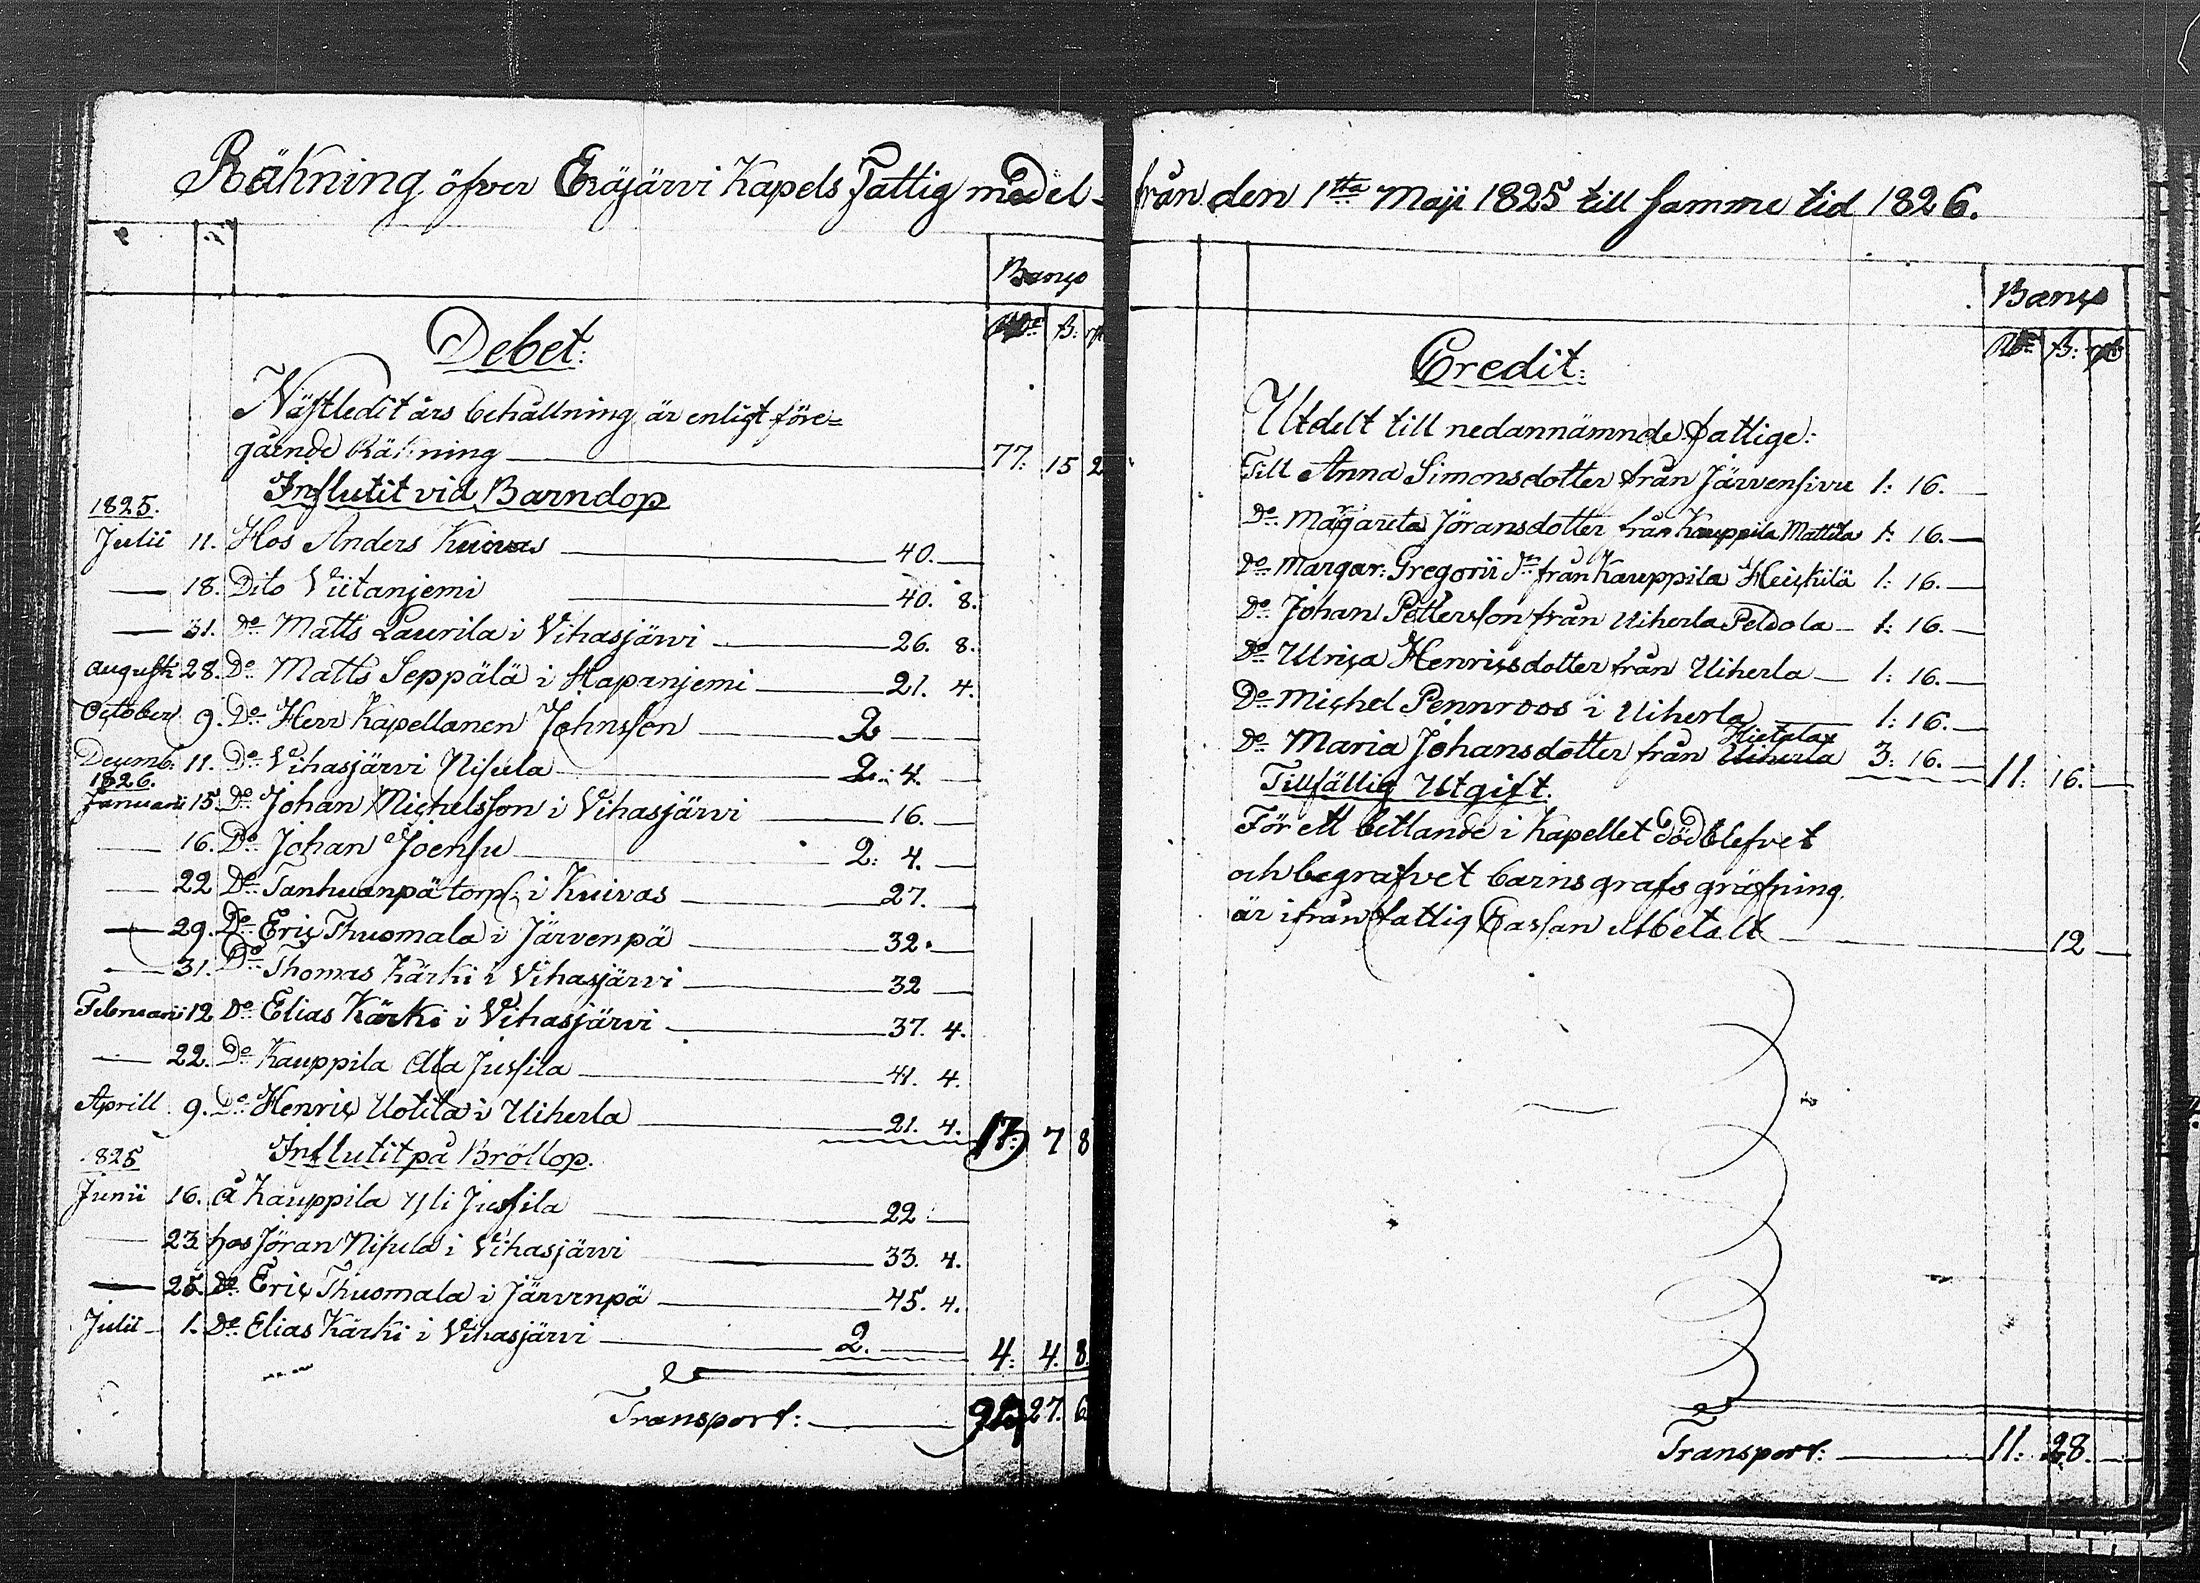 Räkning öfver Eräjärvi Kapels Fattig medel från den 1sta Maji 1825 till samme tid 1826.
Banco
Rdr ß: rst
Debet:
Nästledit års behållning är enligt före=
gående Räkning 77: 15 2
Influtit vid Barndop
1825.
Julii 11. Hos Anders Kuivas 40.
— 18. Dito Viitanjemi 40. 8.
— 31. Do Matts Laurila i Vihasjärvi 26. 8.
Augusti 28. Do Matts Seppälä i Hapanjemi 21. 4.
October 9. Do Herr Kapellanen Johnsson 2
Decemb: 11. Do Vihasjärvi Nisula 2: 4.
1826.
Januarii 15. Do Johan Michelsson i Vihasjärvi 16.
— 16. Do Johan Joensu 2: 4.
— 22 Do Tanhuanpä torp: i Kuivas 27.
— 29. Do Eric Thuomala i Järvenpä 32.
— 31. Do Thomas Kärki i Vihasjärvi 32
Februarii 12 Do Elias Kärki i Vihasjärvi 37. 4.
— 22. Do Kauppila Ala Jussila 41. 4.
Aprill 9. Do Henric Uotila i Uiherla 21. 4. 17: 7 8
Influtit på Bröllop.
1825
Junii 16. å Kauppila Yli Jussila 22
— 23. hos Jöran Nisula i Vihasjärvi 33. 4.
— 25. Do Eric Thuomala i Järvenpä 45. 4.
Julii 1. Do Elias Kärki i Vihasjärvi 2. 4: 4. 8.
Transport: 27. 6.
Banco
Rdr ß: rst
Credit:
Utdelt till nedannämnde fattige:
Till Anna Simonsdotter från Järvensivu 1: 16.
Do Margareta Jöransdotter från Kauppila Mattila 1: 16.
Do Margar: Gregorii Dr från Kauppila Heickilä 1: 16.
Do Johan Pettersson från Uiherla Peldola 1: 16.
Do Ulrica Henricsdotter från Uiherla 1: 16.
Do Michel Pennroos i Uiherla 1: 16.
Hietala
Do Maria Johansdotter från Uiherla 3: 16. 11: 16.
Tillfällig Utgift.
För ett betlande i Kapellet dödblefvet
och begrafvet barns grafs gräfning
är ifrån fattig Cassan utbetalt 12
Transport: 11: 28.